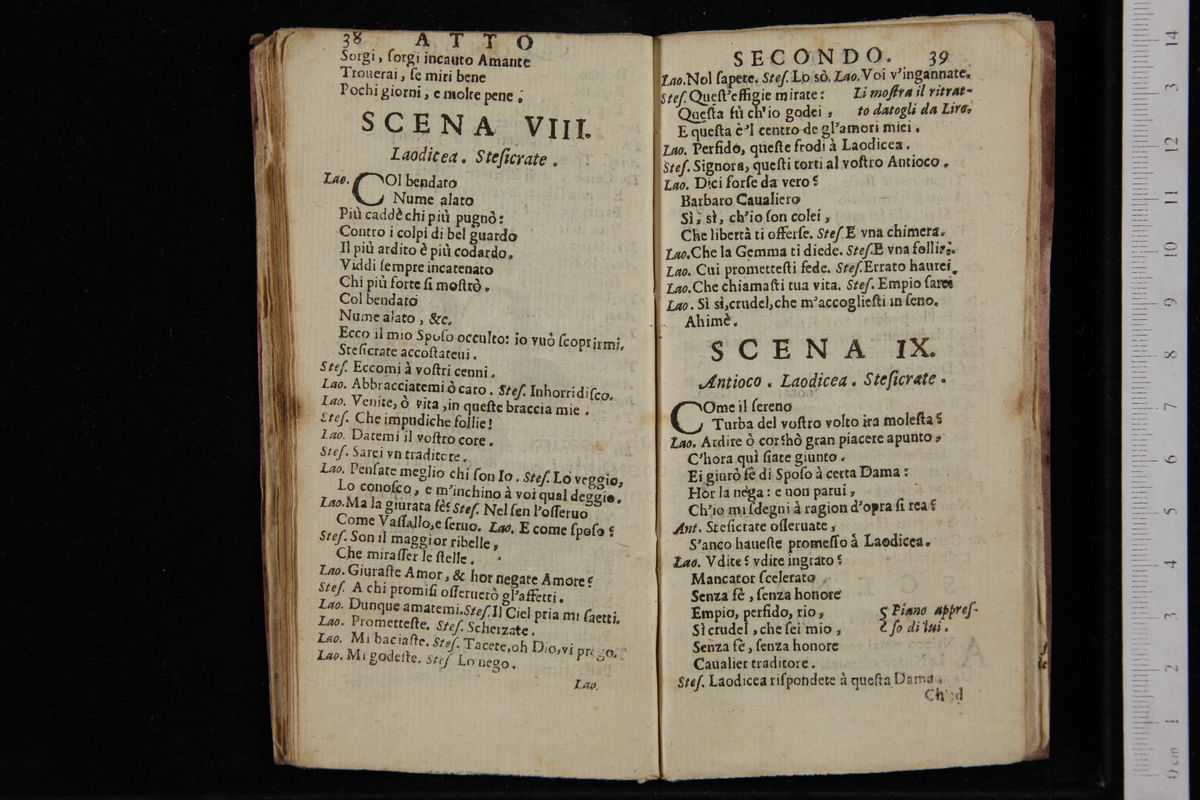 38 ATTO
Sorgi, ſorgi incauto Amante
Trouerai, ſe miri bene
Pochi giorni, e molte pene.
SCENA VIII.
Laodicea. Steſicrate.
Lao. COl bendato
Nume alato
Più caddè chi più pugnò:
Contro i colpi di bel guardo
Il più ardito è più codardo.
Viddi ſempre incatenato
Chi più forte ſi moſtrò.
Col bendato
Nume alato, &c.
Ecco il mio Spoſo occulto: io vuò ſcoprirmi.
Steſicrate accoſtateui.
Steſ. Eccomi à voſtri cenni.
Lao. Abbracciatemi ò caro. Steſ. Inhorridiſco.
Lao. Venite, ò vita, in queſte braccia mie.
Steſ. Che impudiche follie!
Lao. Datemi il voſtro core.
Steſ. Sarei vn traditore.
Lao. Penſate meglio chi ſon Io. Steſ. Lo veggio,
Lo conoſco, e m'inchino à voi qual deggio.
Lao. Ma la giurata fè? Steſ. Nel ſen l'oſſeruo
Come Vaſſallo, e ſeruo. Lao. E come ſpoſo?
Steſ. Son il maggior ribelle,
Che miraſſer le ſtelle.
Lao. Giuraſte Amor, & hor negate Amore?
Steſ. A chi promiſi oſſeruerò gl'affetti.
Lao. Dunque amatemi. Steſ. Il Ciel pria mi ſaetti.
Lao. Prometteſte. Steſ. Scherzate.
Lao. Mi baciaſte. Steſ. Tacete, oh Dio, vi prego.
Lao. Mi godeſte. Steſ Lo nego.
Lao.
SECONDO. 39
Lao. Nol ſapete. Steſ. Lo sò. Lao. Voi v'ingannate.
Steſ. Queſt'effigie mirate: Li moſtra il ritrat-
Queſta fù ch'io godei, to datogli da Liro.
E queſta è'l centro de gl'amori miei.
Lao. Perfido, queſte frodi à Laodicea.
Steſ. Signora, queſti torti al voſtro Antioco.
Lao. Dici forſe da vero?
Barbaro Caualiero
Sì, sì, ch'io ſon colei,
Che libertà ti offerſe. Steſ. E vna chimera.
Lao. Che la Gemma ti diede. Steſ. E vna follia.
Lao. Cui prometteſti fede. Steſ. Errato haurei.
Lao. Che chiamaſti tua vita. Steſ. Empio ſarei
Lao. Sì sì, crudel, che m'accoglieſti in ſeno.
Ahimè.
SCENA IX.
Antioco. Laodicea. Steſicrate.
COme il ſereno
Turba del voſtro volto ira moleſta?
Lao. Ardire ò cor: hò gran piacere apunto,
C'hora quì ſiate giunto.
Ei giurò fè di Spoſo à certa Dama:
Hor la nega: e non parui,
Ch'io mi ſdegni à ragion d'opra ſi rea?
Ant. Steſicrate oſſeruate,
S'anco haueſte promeſſo à Laodicea.
Lao. Vdite? vdite ingrato?
Mancator ſcelerato
Senza fè, ſenza honore
Empio, perfido, rio, Piano appreſ-
Sì crudel, che ſei mio, ſo di lui.
Senza fè, ſenza honore
Caualier traditore.
Steſ. Laodicea riſpondete à queſta Dama,